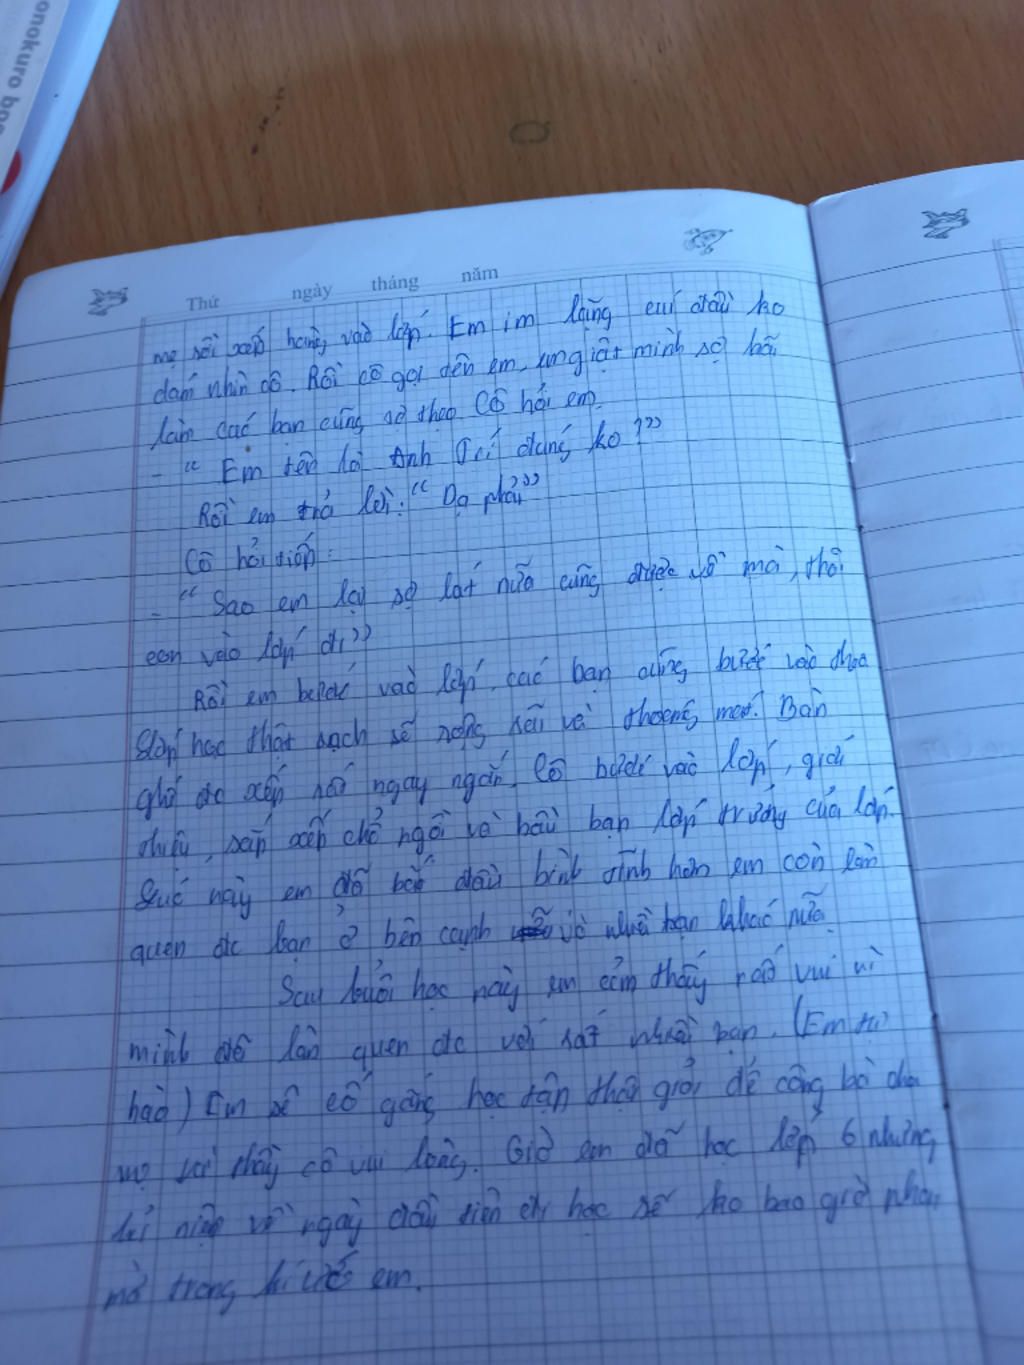 onokuro bo
Thứ ngày tháng năm
mẹ rồi xếp hàng vào lớp. Em im lặng cuí đầu ko
dám nhìn cô. Rồi cô gọi đến em, em giật mình sợ hãi
làm các bạn cũng sợ theo Cô hỏi em.
- “ Em tên là Anh Trí đúng ko ?”
Rồi em trả lời: “ Dạ phải”
Cô hỏi tiếp:
- “ Sao em lại sợ lát nữa cũng được về mà, thôi
con vào lớp đi”
Rồi em bước vào lớp, các bạn cũng bước vào theo
Lớp học thật sạch sẽ rộng rãi và thoáng mát. Bàn
ghế đc xếp rất ngay ngắn. Cô bước vào lớp, giới
thiệu, sắp xếp chổ ngồi và bầu bạn lớp trưởng của lớp.
Lúc này em đã bắt đầu bình tĩnh hơn em còn làm
quen đc bạn ở bên cạnh và nhiều bạn khác nữa
Sau buổi học này em cảm thấy rất vui vì
mình đã làm quen đc với rất nhiều bạn. (Em tự
hào) Em sẽ cố gắng học tập thật giỏi để công bố cha
mẹ và thầy cô vui lòng. Giờ em đã học lớp 6 nhưng
kỉ niệm về ngày đầu tiên đi học sẽ ko bao giờ phai
mờ trong kí ức em.